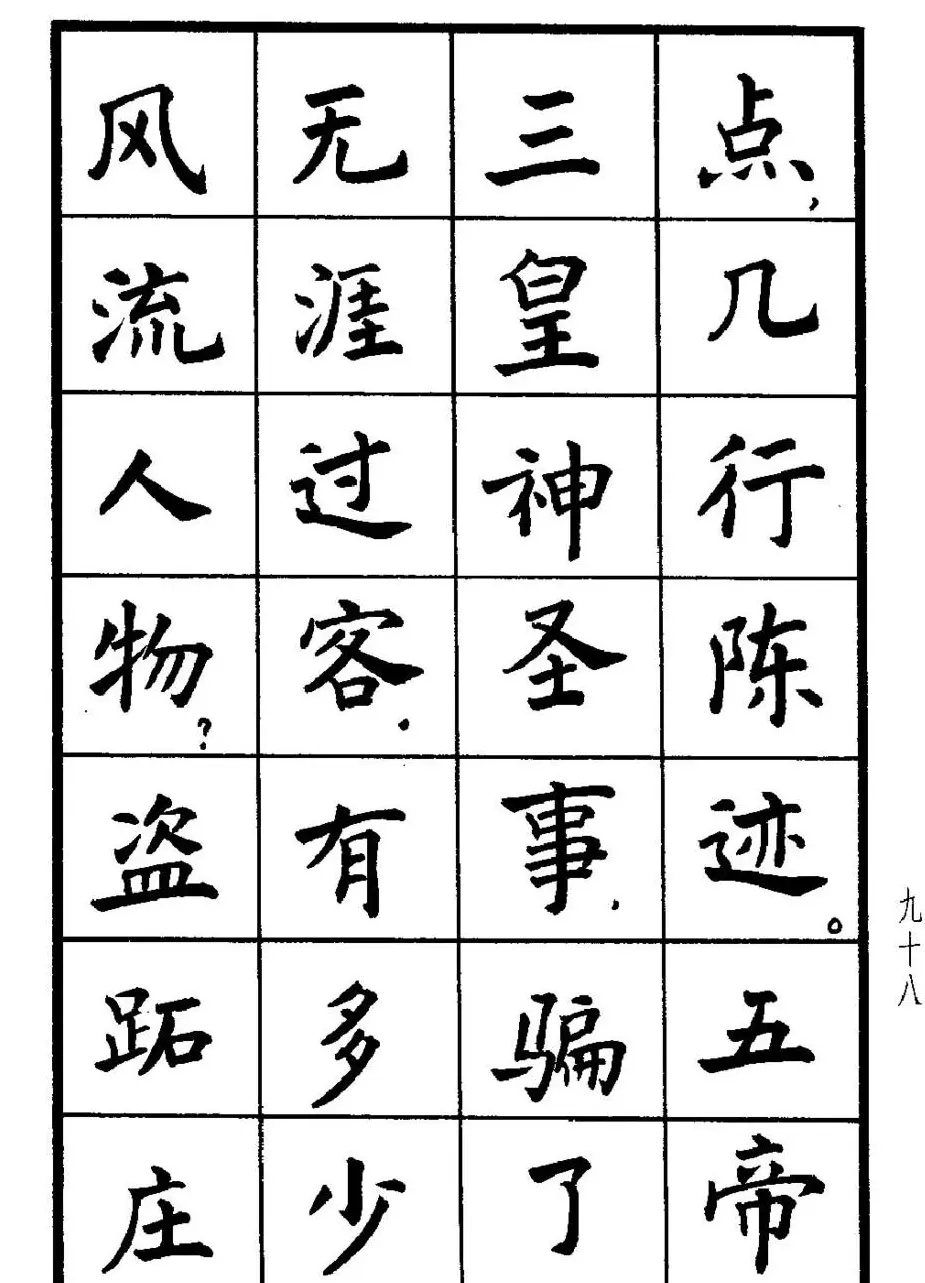 点，几行陈迹。五帝
三皇神圣事，骗了
无涯过客。有多少
风流人物？盗跖庄
九十八